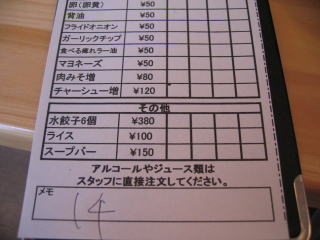 卵(卵黄) ¥50
背油 ¥50
フライドオニオン ¥50
ガーリックチップ ¥50
食べる痺れラー油 ¥50
マヨネーズ ¥50
肉みそ増 ¥80
チャーシュー増 ¥120
その他
水餃子6個 ¥380
ライス ¥100
スープバー ¥150
アルコールやジュース類は
スタッフに直接注文してください。
メモ
14